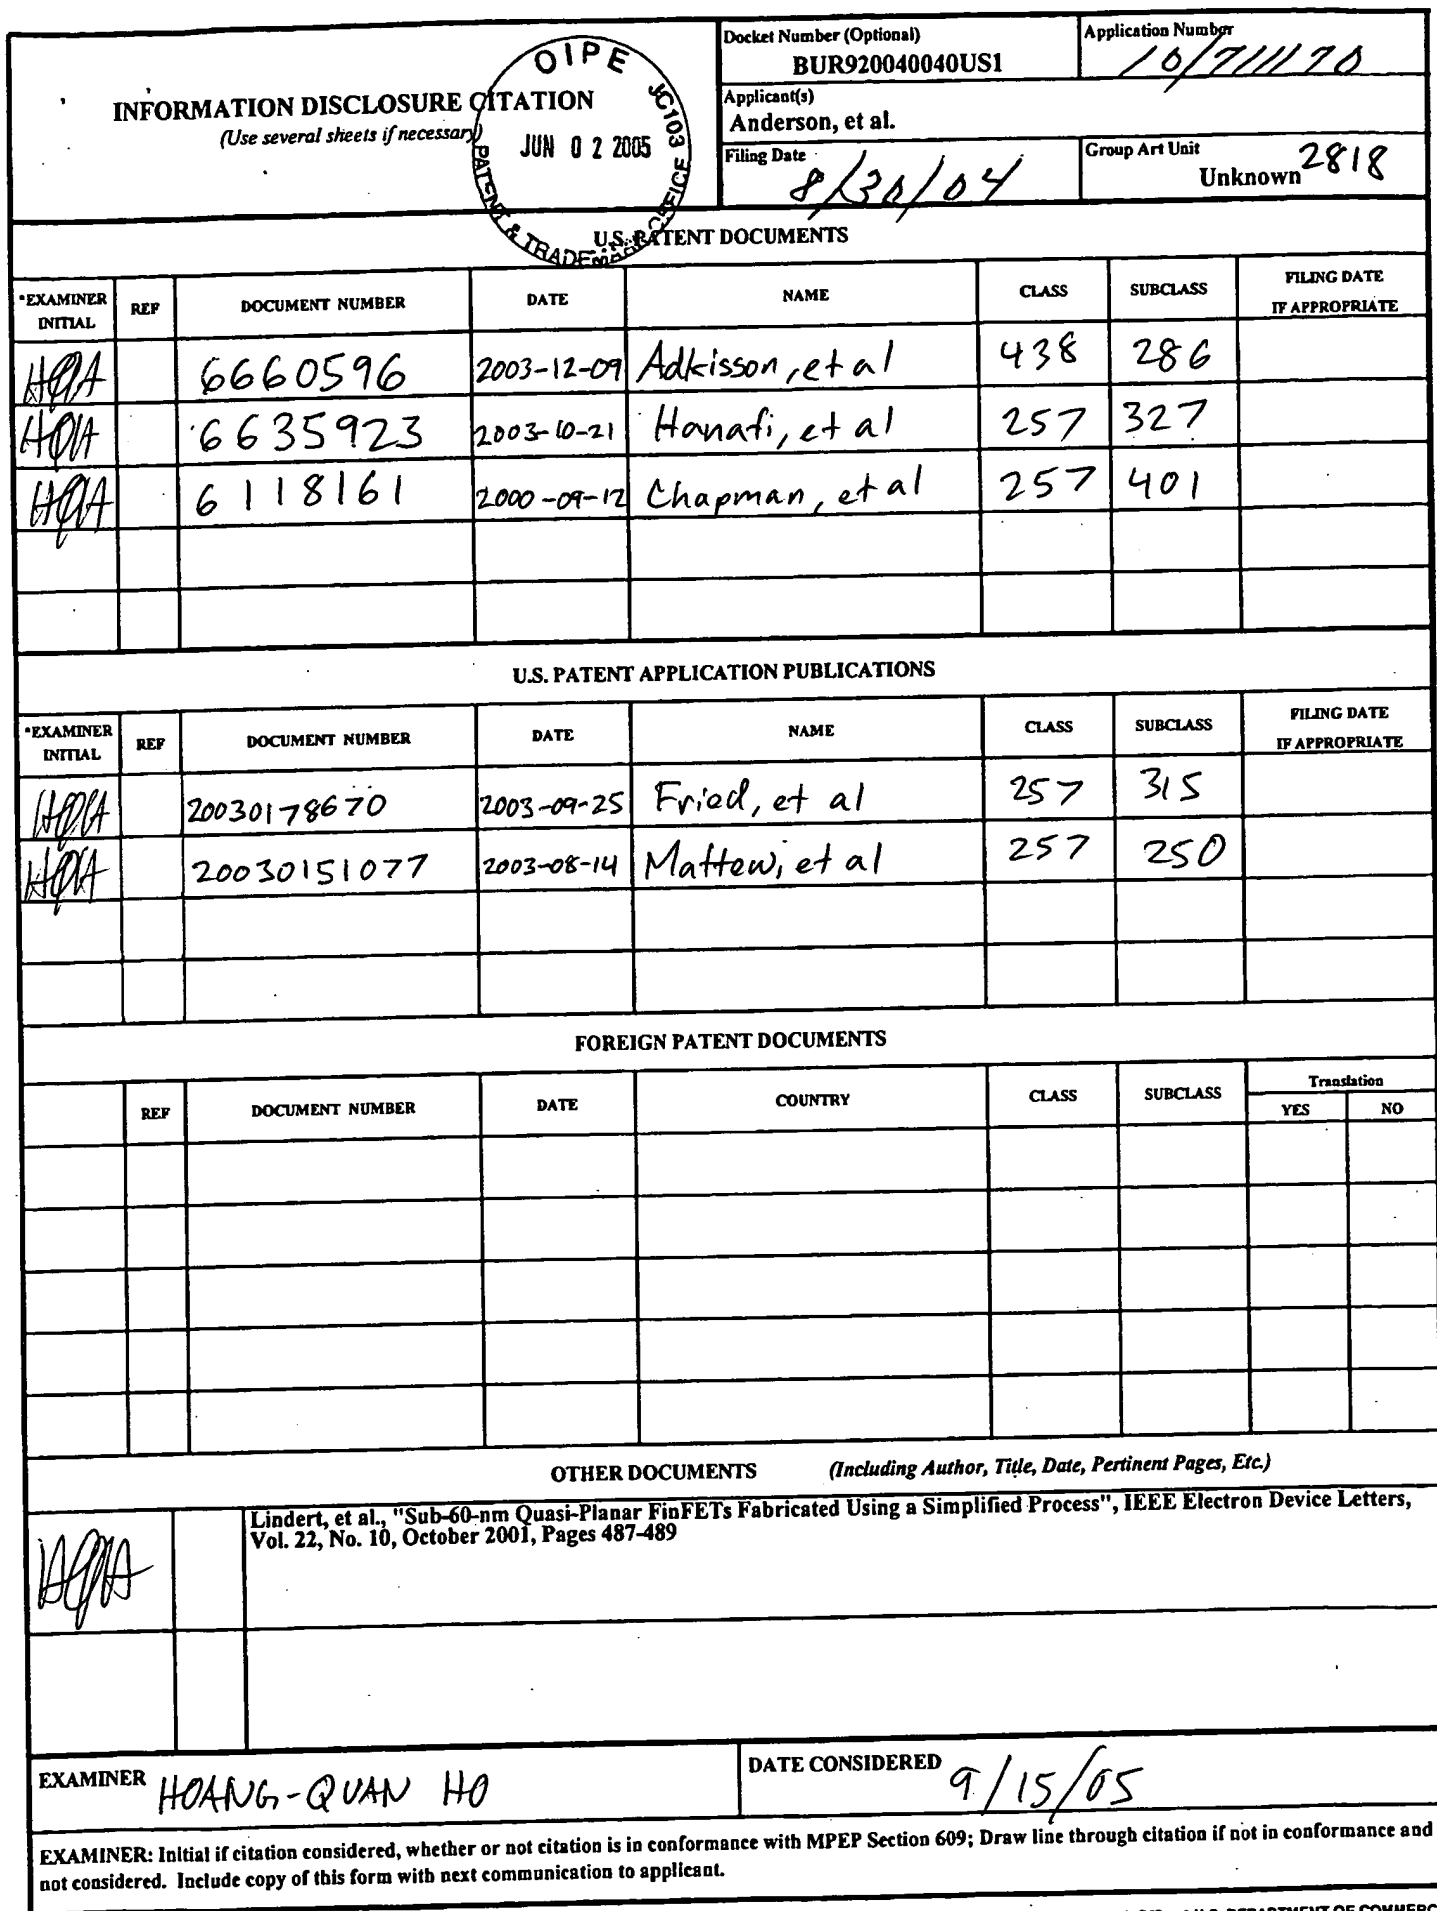 Docket Number (Optional)
BUR920040040US1
Application Number
10/711170
INFORMATION DISCLOSURE CITATION
(Use several sheets if necessary)
OIPE JC103
JUN 02 2005
PATENT & TRADEMARK OFFICE
Applicant(s)
Anderson, et al.
Filing Date
8/30/04
Group Art Unit
Unknown 2818
U.S. PATENT DOCUMENTS
*EXAMINER INITIAL REF DOCUMENT NUMBER DATE NAME CLASS SUBCLASS FILING DATE IF APPROPRIATE
6660596 2003-12-09 Adkisson, et al 438 286
6635923 2003-10-21 Hanafi, et al 257 327
6118161 2000-09-12 Chapman, et al 257 401
U.S. PATENT APPLICATION PUBLICATIONS
*EXAMINER INITIAL REF DOCUMENT NUMBER DATE NAME CLASS SUBCLASS FILING DATE IF APPROPRIATE
20030178670 2003-09-25 Fried, et al 257 315
20030151077 2003-08-14 Mattew, et al 257 250
FOREIGN PATENT DOCUMENTS
REF DOCUMENT NUMBER DATE COUNTRY CLASS SUBCLASS Translation
YES NO
OTHER DOCUMENTS (Including Author, Title, Date, Pertinent Pages, Etc.)
Lindert, et al., "Sub-60-nm Quasi-Planar FinFETs Fabricated Using a Simplified Process", IEEE Electron Device Letters,
Vol. 22, No. 10, October 2001, Pages 487-489
EXAMINER HOANG-QUAN HO
DATE CONSIDERED 9/15/05
EXAMINER: Initial if citation considered, whether or not citation is in conformance with MPEP Section 609; Draw line through citation if not in conformance and
not considered. Include copy of this form with next communication to applicant.